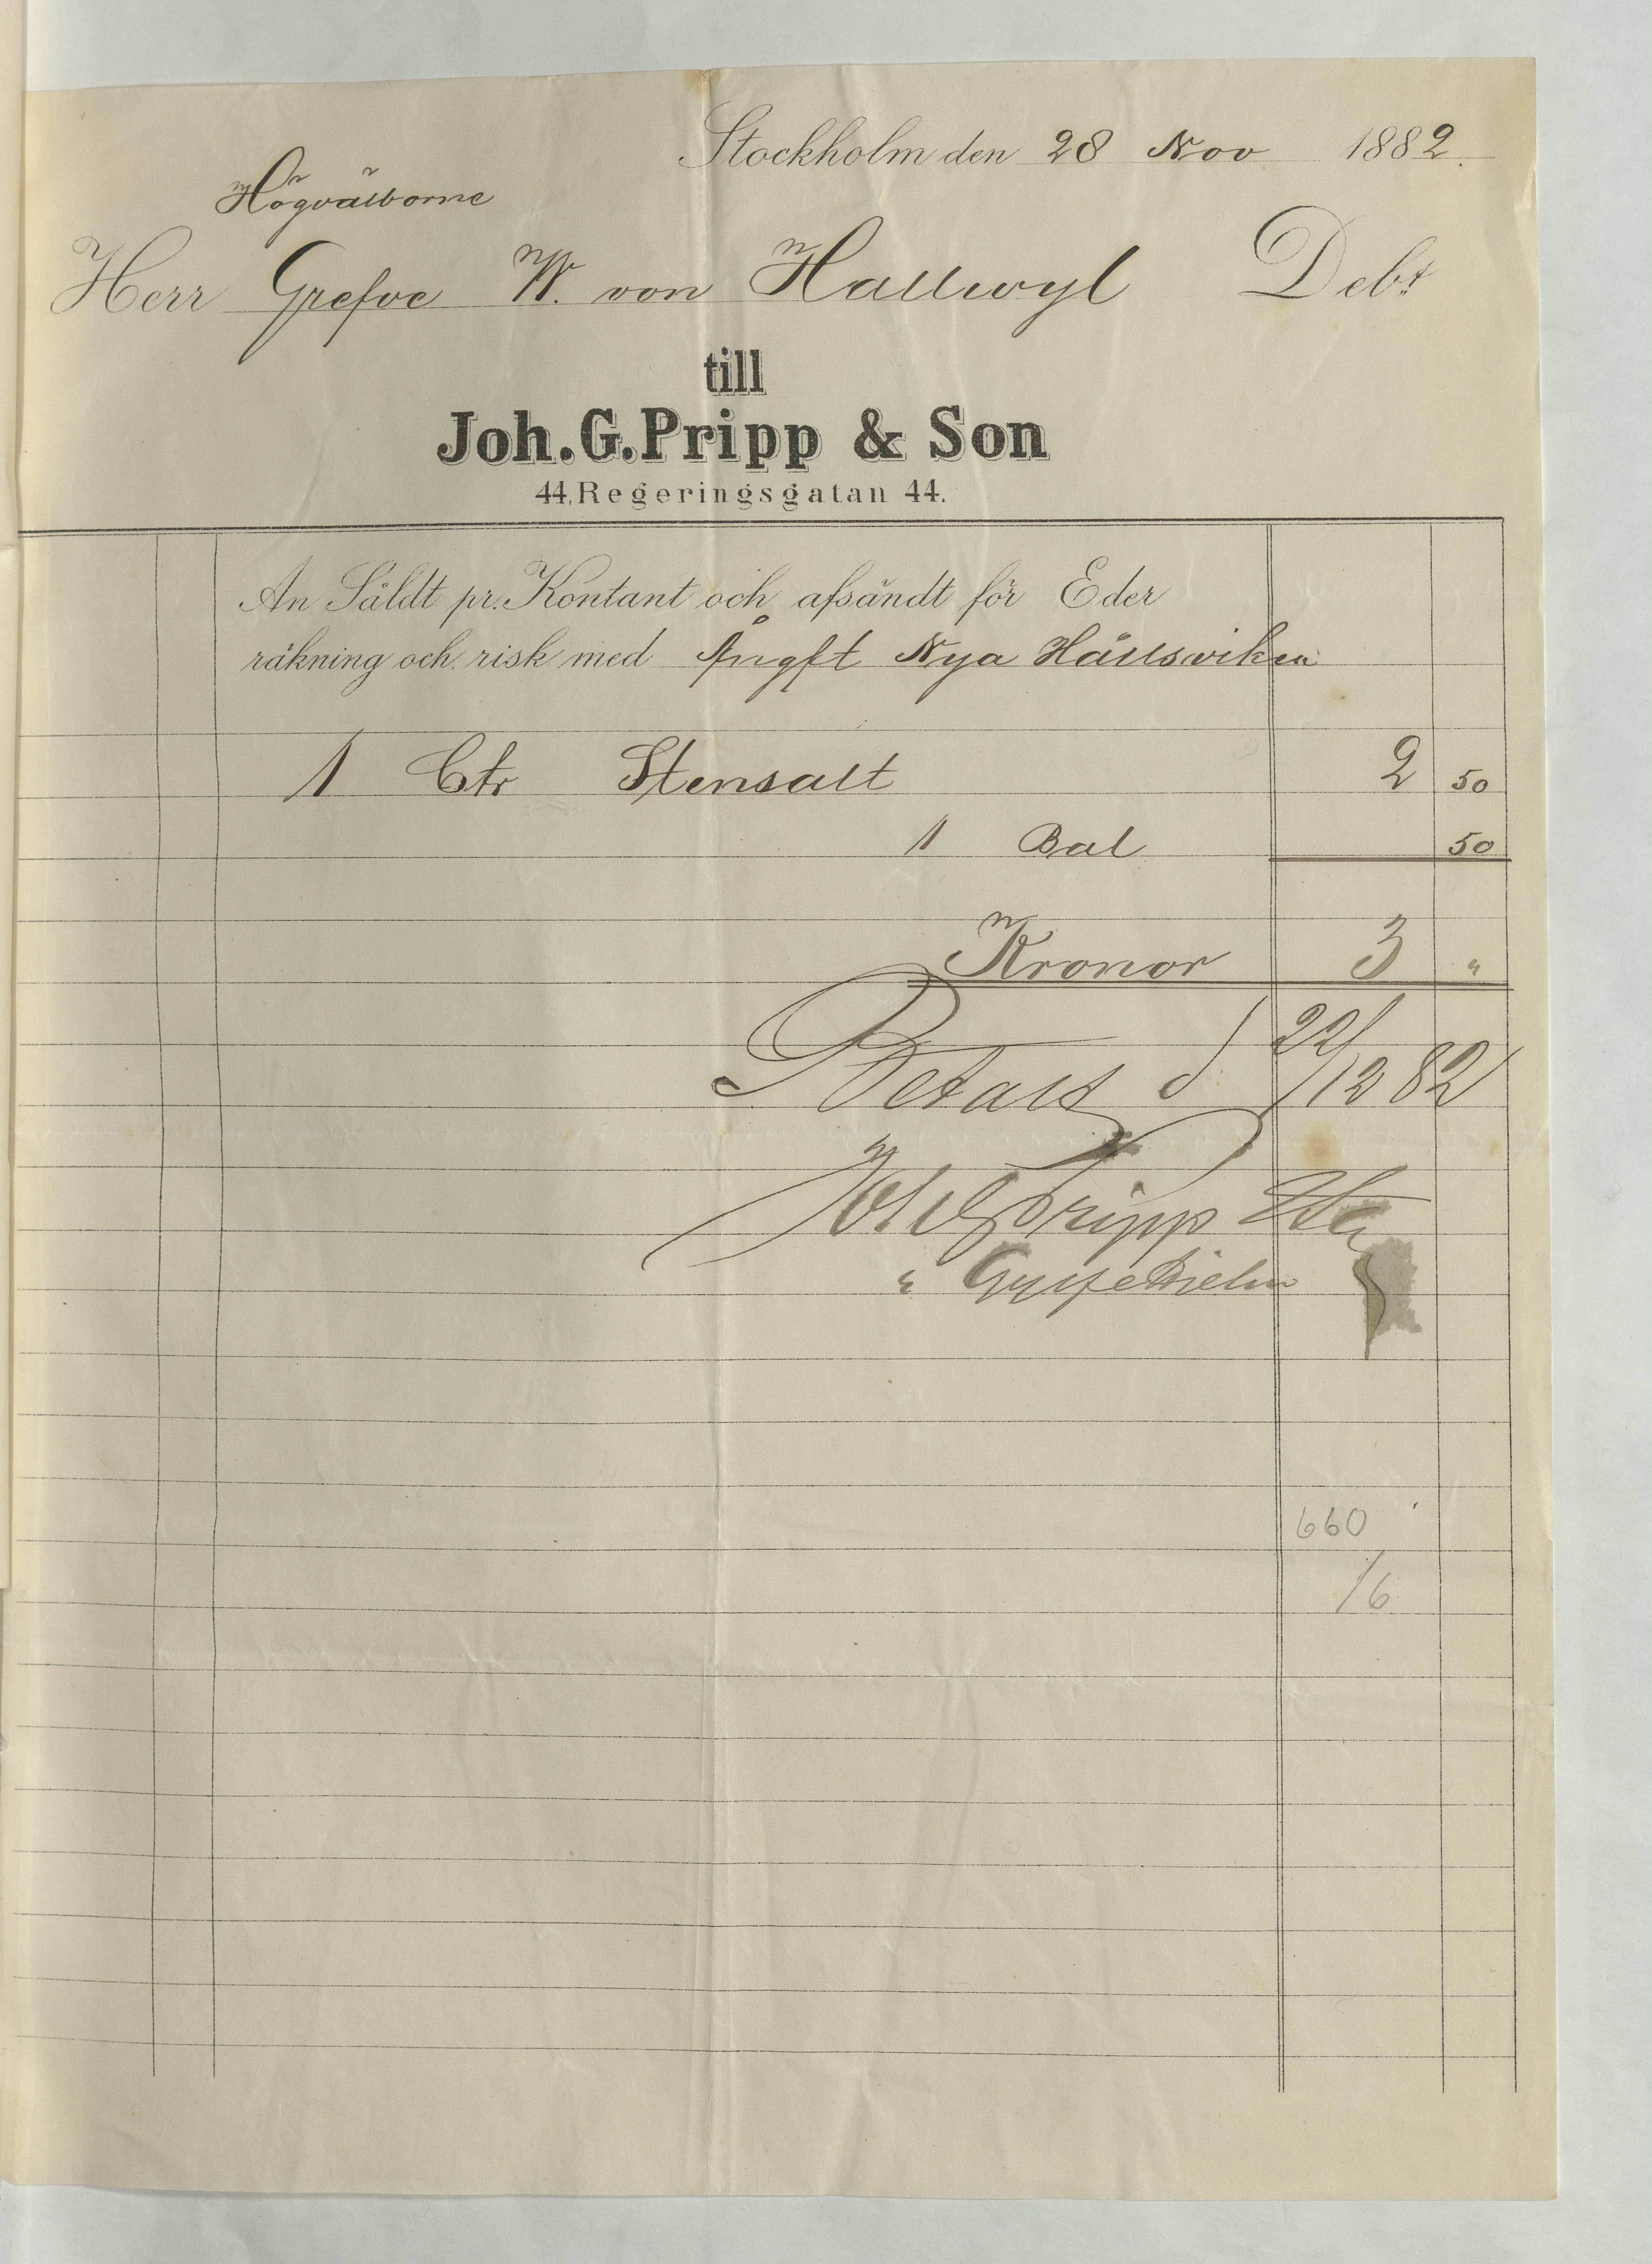 Stockholm den 28 Nov 1882.
Högvälborne
Herr Grefve W. von Hallwyl Debt
till
Joh. G. Pripp & Son
44, Regeringsgatan 44.
An Såldt pr. Kontant och afsändt för Eder
räkning och risk med Ångft Nya Hällsviken
1 Ctr Stensalt 2 50
1 Bal 50
Kronor 3 "
Betalt d 22/12 82
Joh G Pripp & Son
660
16